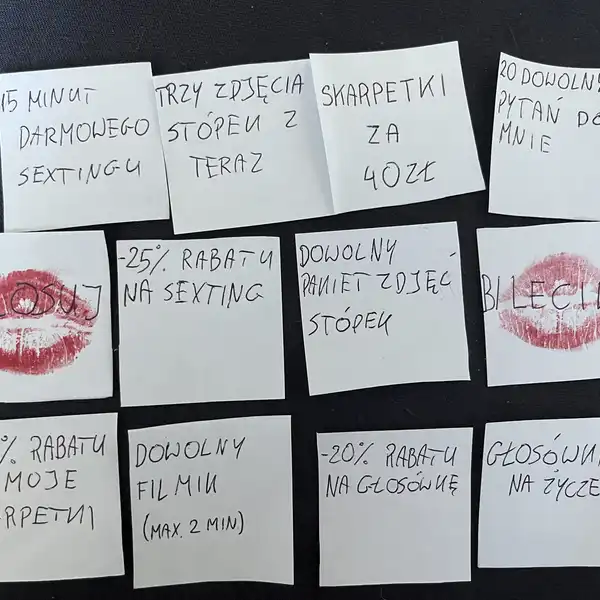 15 MINUT
DARMOWEGO
SEXTINGU
TRZY ZDJĘCIA
STÓPEK Z
TERAZ
SKARPETKI
ZA
40ZŁ
20 DOWOLNY
PYTAŃ DO
MNIE
LOSUJ
-25% RABATU
NA SEXTING
DOWOLNY
PAKIET ZDJĘĆ
STÓPEK
BILECI
% RABATU
MOJE
RPETKI
DOWOLNY
FILMIK
(MAX. 2 MIN)
-20% RABATU
NA GŁOSÓWKĘ
GŁOSÓWK
NA ŻYCZE